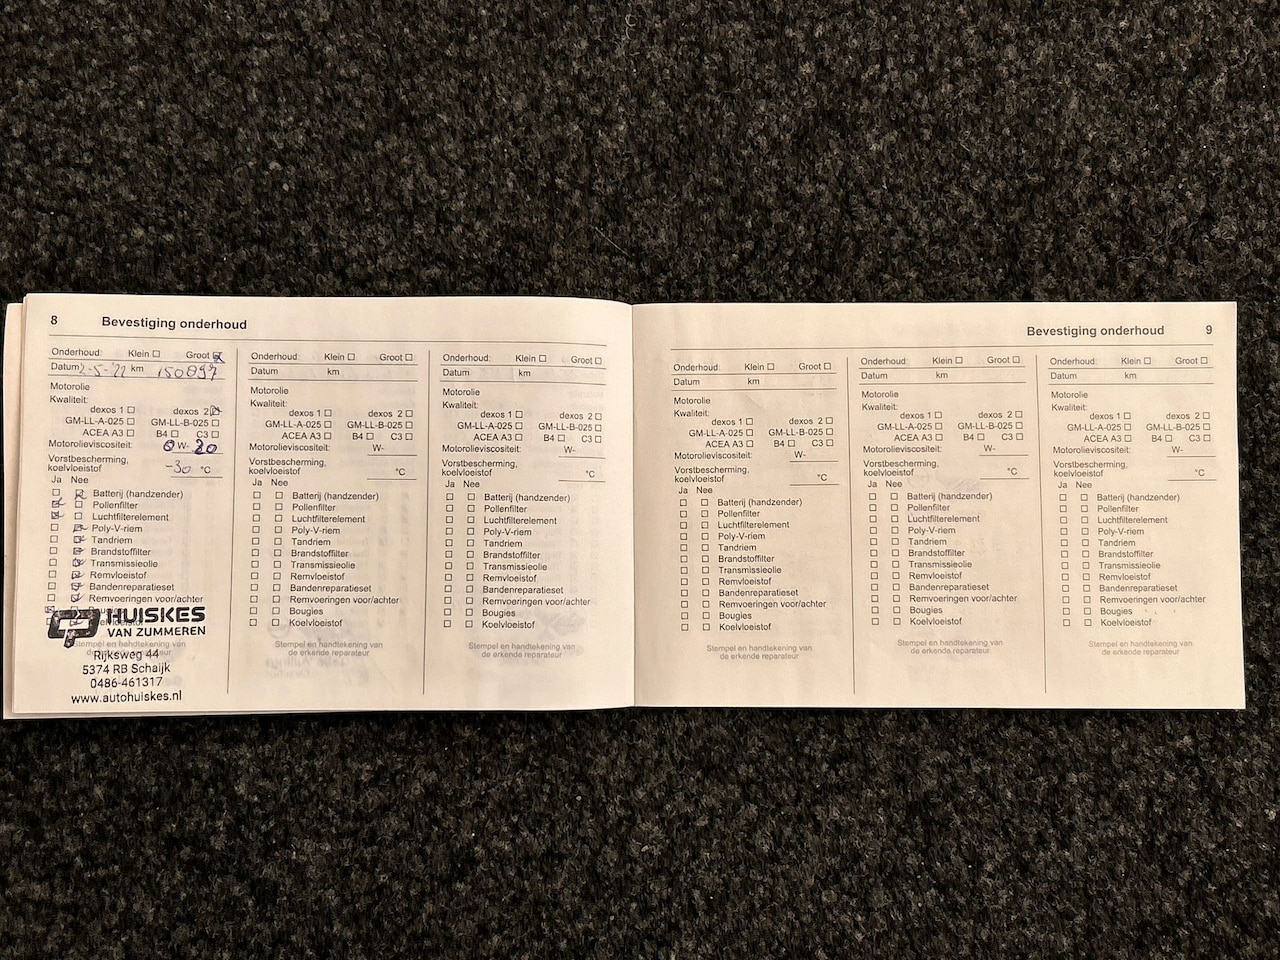 8 Bevestiging onderhoud
Onderhoud: Klein ☐ Groot ☒
Datum 2-5-'22 km 150897
Motorolie
Kwaliteit:
dexos 1 ☐ dexos 2 ☒
GM-LL-A-025 ☐ GM-LL-B-025 ☐
ACEA A3 ☐ B4 ☐ C3 ☐
Motorolieviscositeit: 0 W- 20
Vorstbescherming,
koelvloeistof -30 °C
Ja Nee
☐ ☒ Batterij (handzender)
☒ ☐ Pollenfilter
☒ ☐ Luchtfilterelement
☐ ☒ Poly-V-riem
☐ ☒ Tandriem
☐ ☒ Brandstoffilter
☐ ☒ Transmissieolie
☐ ☒ Remvloeistof
☐ ☒ Bandenreparatieset
☐ ☒ Remvoeringen voor/achter
HUISKES
VAN ZUMMEREN
Stempel en handtekening van
Rijksweg 44
5374 RB Schaijk
0486-461317
www.autohuiskes.nl
Onderhoud: Klein ☐ Groot ☐
Datum km
Motorolie
Kwaliteit:
dexos 1 ☐ dexos 2 ☐
GM-LL-A-025 ☐ GM-LL-B-025 ☐
ACEA A3 ☐ B4 ☐ C3 ☐
Motorolieviscositeit: W-
Vorstbescherming,
koelvloeistof °C
Ja Nee
☐ ☐ Batterij (handzender)
☐ ☐ Pollenfilter
☐ ☐ Luchtfilterelement
☐ ☐ Poly-V-riem
☐ ☐ Tandriem
☐ ☐ Brandstoffilter
☐ ☐ Transmissieolie
☐ ☐ Remvloeistof
☐ ☐ Bandenreparatieset
☐ ☐ Remvoeringen voor/achter
☐ ☐ Bougies
☐ ☐ Koelvloeistof
Stempel en handtekening van
de erkende reparateur
Onderhoud: Klein ☐ Groot ☐
Datum km
Motorolie
Kwaliteit:
dexos 1 ☐ dexos 2 ☐
GM-LL-A-025 ☐ GM-LL-B-025 ☐
ACEA A3 ☐ B4 ☐ C3 ☐
Motorolieviscositeit: W-
Vorstbescherming,
koelvloeistof °C
Ja Nee
☐ ☐ Batterij (handzender)
☐ ☐ Pollenfilter
☐ ☐ Luchtfilterelement
☐ ☐ Poly-V-riem
☐ ☐ Tandriem
☐ ☐ Brandstoffilter
☐ ☐ Transmissieolie
☐ ☐ Remvloeistof
☐ ☐ Bandenreparatieset
☐ ☐ Remvoeringen voor/achter
☐ ☐ Bougies
☐ ☐ Koelvloeistof
Stempel en handtekening van
de erkende reparateur
Bevestiging onderhoud 9
Onderhoud: Klein ☐ Groot ☐
Datum km
Motorolie
Kwaliteit:
dexos 1 ☐ dexos 2 ☐
GM-LL-A-025 ☐ GM-LL-B-025 ☐
ACEA A3 ☐ B4 ☐ C3 ☐
Motorolieviscositeit: W-
Vorstbescherming,
koelvloeistof °C
Ja Nee
☐ ☐ Batterij (handzender)
☐ ☐ Pollenfilter
☐ ☐ Luchtfilterelement
☐ ☐ Poly-V-riem
☐ ☐ Tandriem
☐ ☐ Brandstoffilter
☐ ☐ Transmissieolie
☐ ☐ Remvloeistof
☐ ☐ Bandenreparatieset
☐ ☐ Remvoeringen voor/achter
☐ ☐ Bougies
☐ ☐ Koelvloeistof
Stempel en handtekening van
de erkende reparateur
Onderhoud: Klein ☐ Groot ☐
Datum km
Motorolie
Kwaliteit:
dexos 1 ☐ dexos 2 ☐
GM-LL-A-025 ☐ GM-LL-B-025 ☐
ACEA A3 ☐ B4 ☐ C3 ☐
Motorolieviscositeit: W-
Vorstbescherming,
koelvloeistof °C
Ja Nee
☐ ☐ Batterij (handzender)
☐ ☐ Pollenfilter
☐ ☐ Luchtfilterelement
☐ ☐ Poly-V-riem
☐ ☐ Tandriem
☐ ☐ Brandstoffilter
☐ ☐ Transmissieolie
☐ ☐ Remvloeistof
☐ ☐ Bandenreparatieset
☐ ☐ Remvoeringen voor/achter
☐ ☐ Bougies
☐ ☐ Koelvloeistof
Stempel en handtekening van
de erkende reparateur
Onderhoud: Klein ☐ Groot ☐
Datum km
Motorolie
Kwaliteit:
dexos 1 ☐ dexos 2 ☐
GM-LL-A-025 ☐ GM-LL-B-025 ☐
ACEA A3 ☐ B4 ☐ C3 ☐
Motorolieviscositeit: W-
Vorstbescherming,
koelvloeistof °C
Ja Nee
☐ ☐ Batterij (handzender)
☐ ☐ Pollenfilter
☐ ☐ Luchtfilterelement
☐ ☐ Poly-V-riem
☐ ☐ Tandriem
☐ ☐ Brandstoffilter
☐ ☐ Transmissieolie
☐ ☐ Remvloeistof
☐ ☐ Bandenreparatieset
☐ ☐ Remvoeringen voor/achter
☐ ☐ Bougies
☐ ☐ Koelvloeistof
Stempel en handtekening van
de erkende reparateur